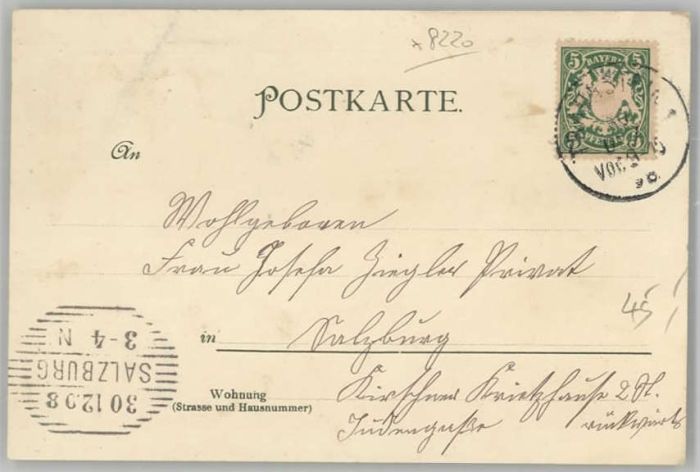 * 8220
5 BAYERN 5
POSTKARTE.
An
Wohlgeboren
Frau Josefa Ziegler Privat
45
in Salzburg
Wohnung
(Strasse und Hausnummer)
Kirschner 2 St.
Judengaße rückwärts
3-4 N
SALZBURG
30 12 98